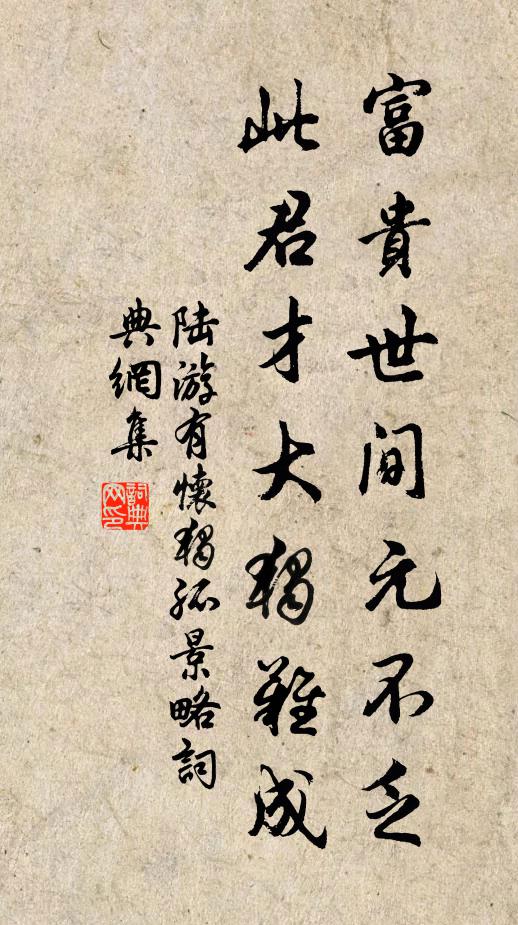 富貴世間元不乏
此君才大獨難成
陸游有懷獨孤景略詞
典網集
詞典
网印